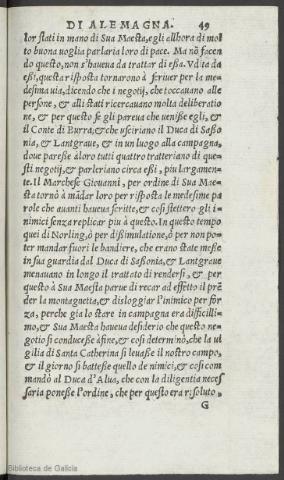 DI ALEMAGNA. 49
lor stati in mano di Sua Maesta, egli allhora di mol
to buona uoglia parlaria loro di pace. Ma nõ facen
do questo, non s'haueua da trattar di essa. Vdita da
essi, questa risposta tornarono à scriuer per la me-
desima uia, dicendo che i negotij, che toccauano alle
persone, & alli stati ricercauano molta deliberatio
ne, & per questo se gli pareua che uenisse egli, &
il Conte di Burra, & che usciriano il Duca di Sasso
nia, & Lantgraue, & in un luogo alla campagna,
doue paresse à loro tutti quattro trattariano di que
sti negotij, & parleriano circa essi, piu largamen-
te. Il Marchese Giouanni, per ordine di Sua Mae
sta tornò à mãdar loro per risposta le medesime pa
role che auanti haueua scritte, & cosi stettero gli i-
nimici senza replicar piu à questo. In questo tempo
quei di Norling, ò per dissimulatione, ò per non po-
ter mandar fuori le bandiere, che erano state messe
in sua guardia dal Duca di Sassonia, & Lantgraue
menauano in longo il trattato di rendersi, & per
questo à Sua Maesta parue di recar ad effetto il prẽ
der la montagnetta, & disloggiar l'inimico per for
za, perche gia lo stare in campagna era difficilli-
mo, & Sua Maesta haueua desiderio che questo ne-
gotio si conducesse à fine, & cosi determinò, che la ui
gilia di Santa Catherina si leuasse il nostro campo,
& il giorno si battesse quello de nimici, & cosi com
mandò al Duca d'Alua, che con la diligentia neces
saria ponesse l'ordine, che per questo era risoluto.
G
Biblioteca de Galicia